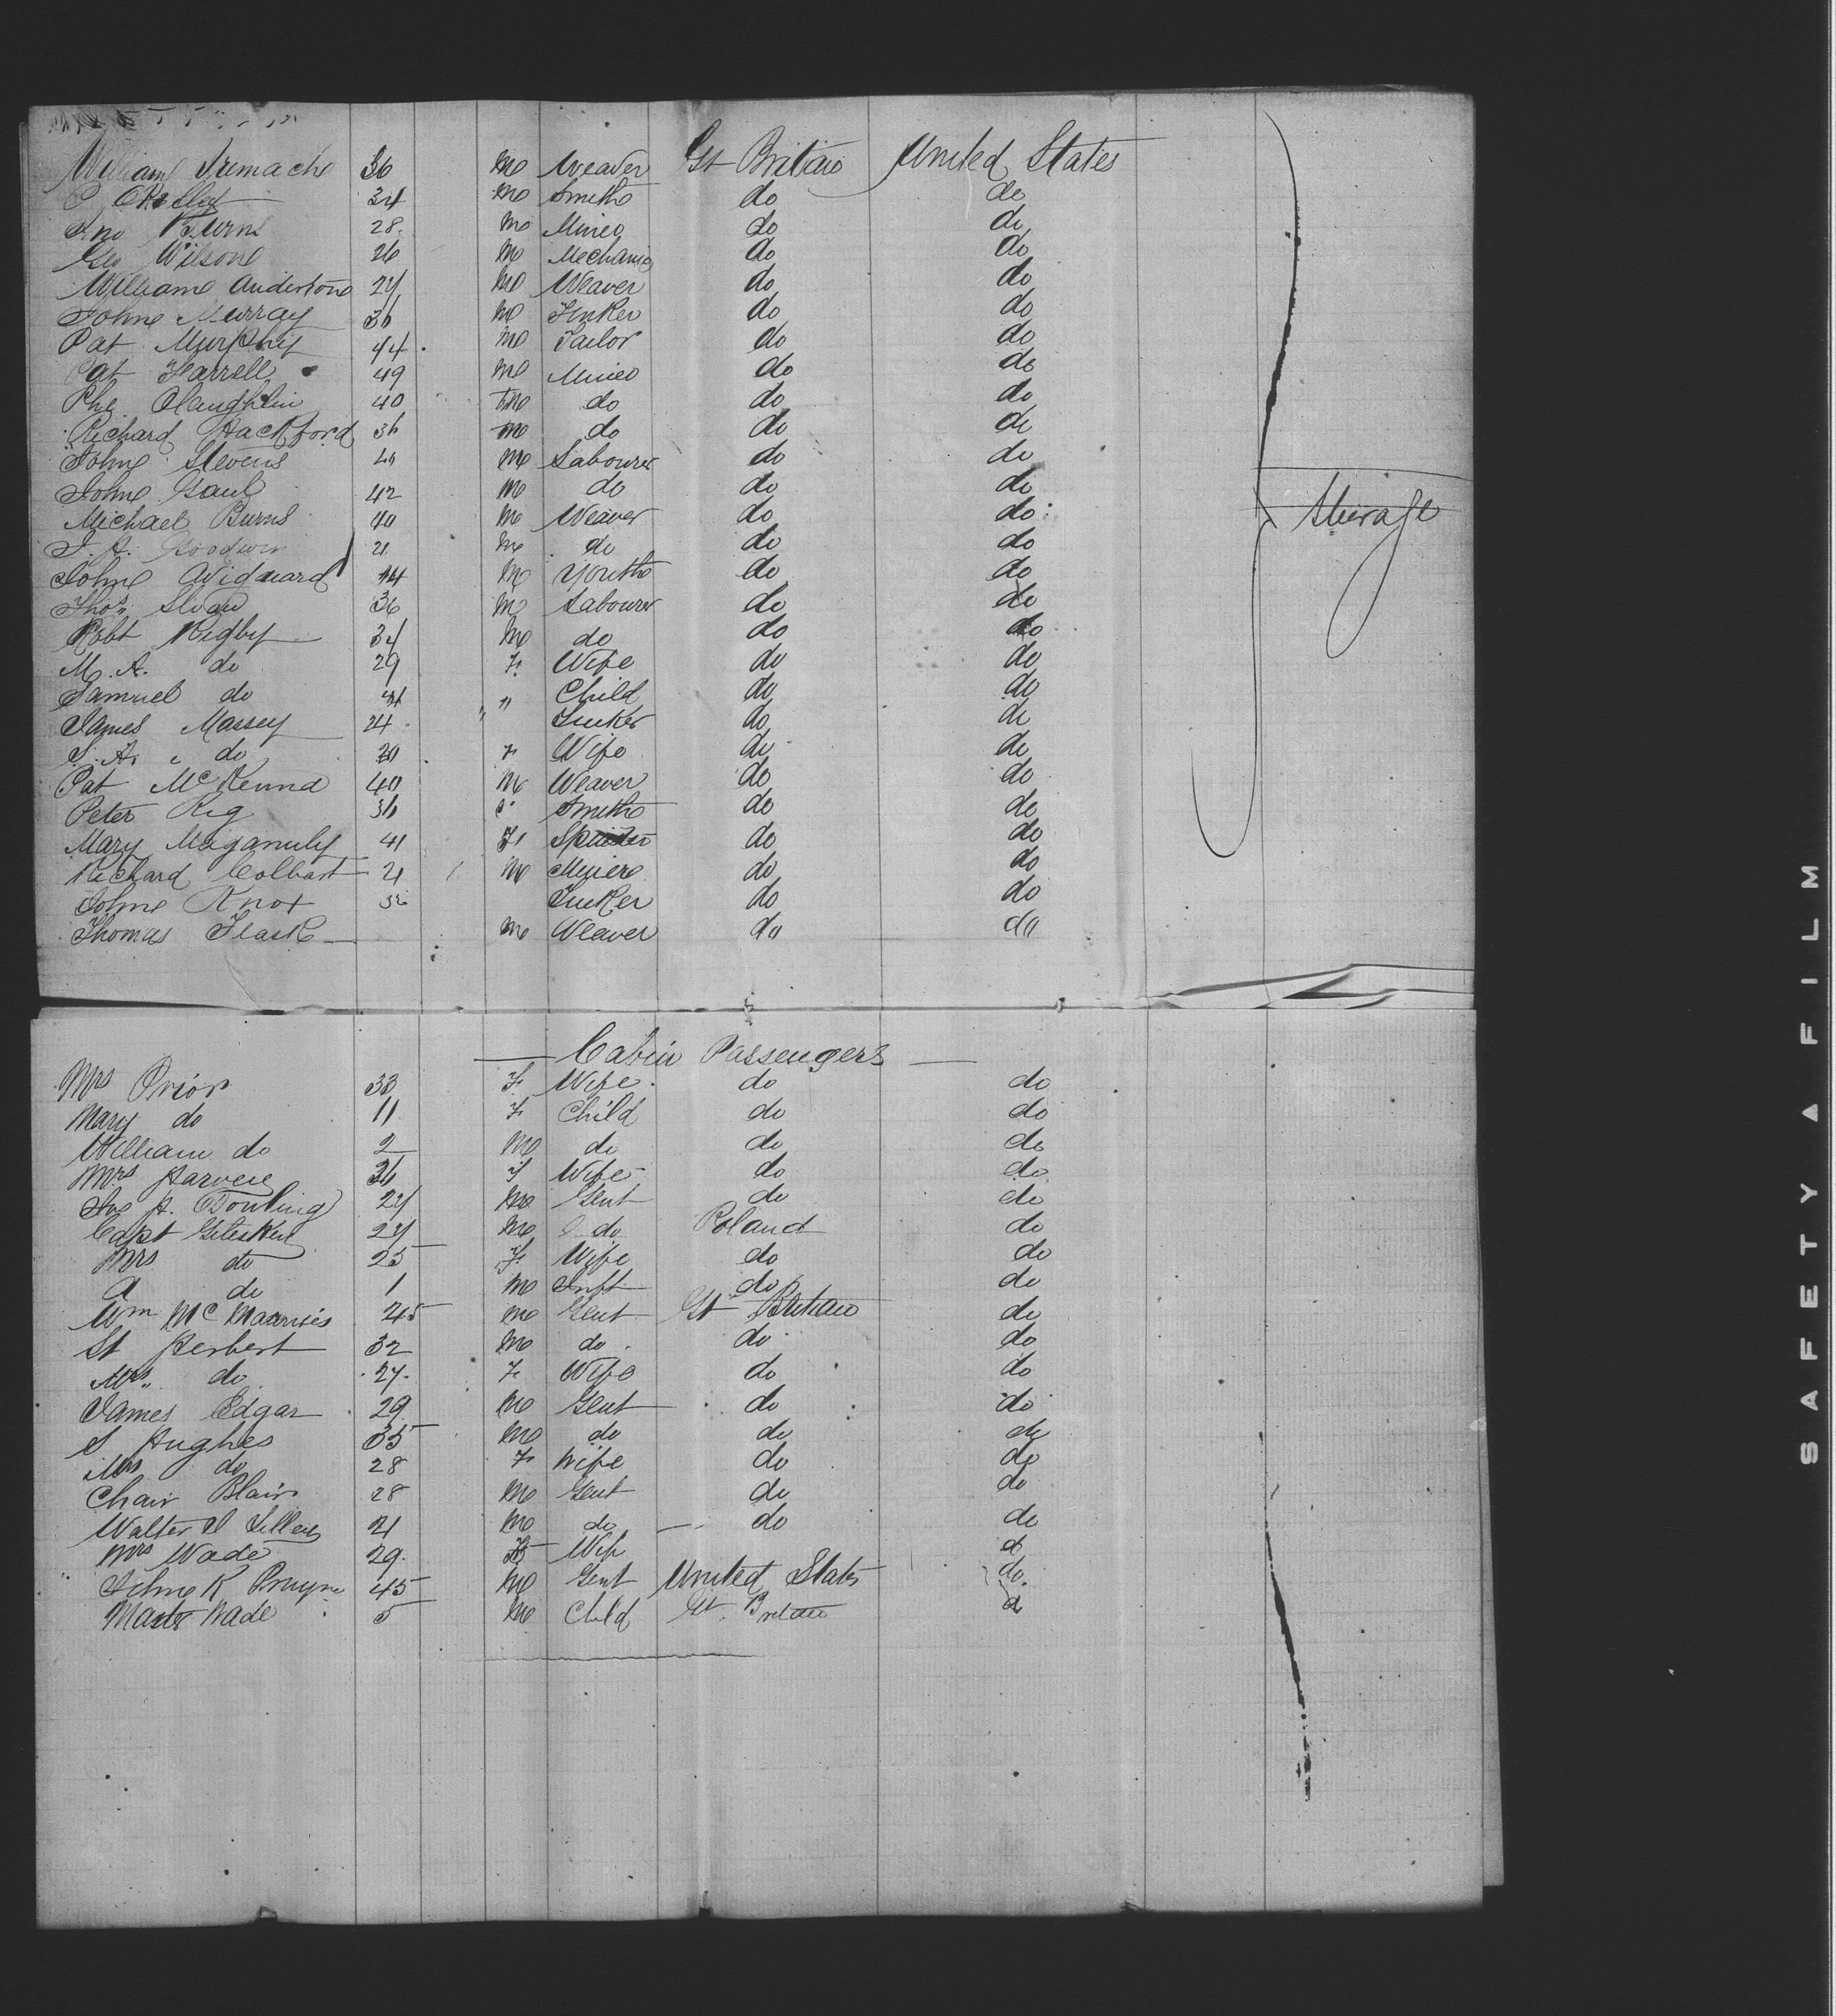 William 36 m Weaver Gt Britain United States
34 m Smith do do
Jno Burns 28 m Miner do do
Geo Wilson 26 m Mechanic do do
William Anderson 24 m Weaver do do
John Murray 36 m Tinker do do
Pat Murphy 44 m Tailor do do
Pat Farrell 49 m Miner do do
Olaughlin 40 m do do do
Richard Hackford 36 m do do do
John Stevens 40 m Labourer do do
John Gaul 42 m do do do
Michael Burns 40 m Weaver do do
Steerage
J. A. Goodwin 21 m do do do
John 14 m Youth do do
Thos Sloan 36 m Labourer do do
Robt Rigby 34 m do do do
M. A. do 29 F Wife do do
Samuel do " Child do do
James Massey 24 " Tinker do do
S. A. do 20 F Wife do do
Pat McKenna 40 m Weaver do do
Peter Rig 36 Smith do do
Mary 41 F do do
Richard Colbart 21 m Miner do do
John Knox Tinker do do
Thomas Flask m Weaver do do
Cabin Passengers
Mrs Prior 33 F Wife do do
Mary do 11 F Child do do
William do 2 m do do do
Mrs Harvey 36 F Wife do do
Jno H. Dowling 24 m Gent do do
Capt 27 m do Poland do
Mrs do 25 F Wife do do
A do 1 m Inft do do
Wm Mc 45 m Gent Gt Britain do
St Herbert 32 m do do do
Mrs do 27 F Wife do do
James Edgar 29 m Gent do do
S Hughes 35 m do do do
Mrs do 28 F Wife do do
Blair 28 m Gent do do
Walter 21 m do do do
Mrs Wade 29 F Wife d
John K Pruyn 45 m Gent United States do
Master Wade 5 m Child Gt Britain d
SAFETY ▲ FILM